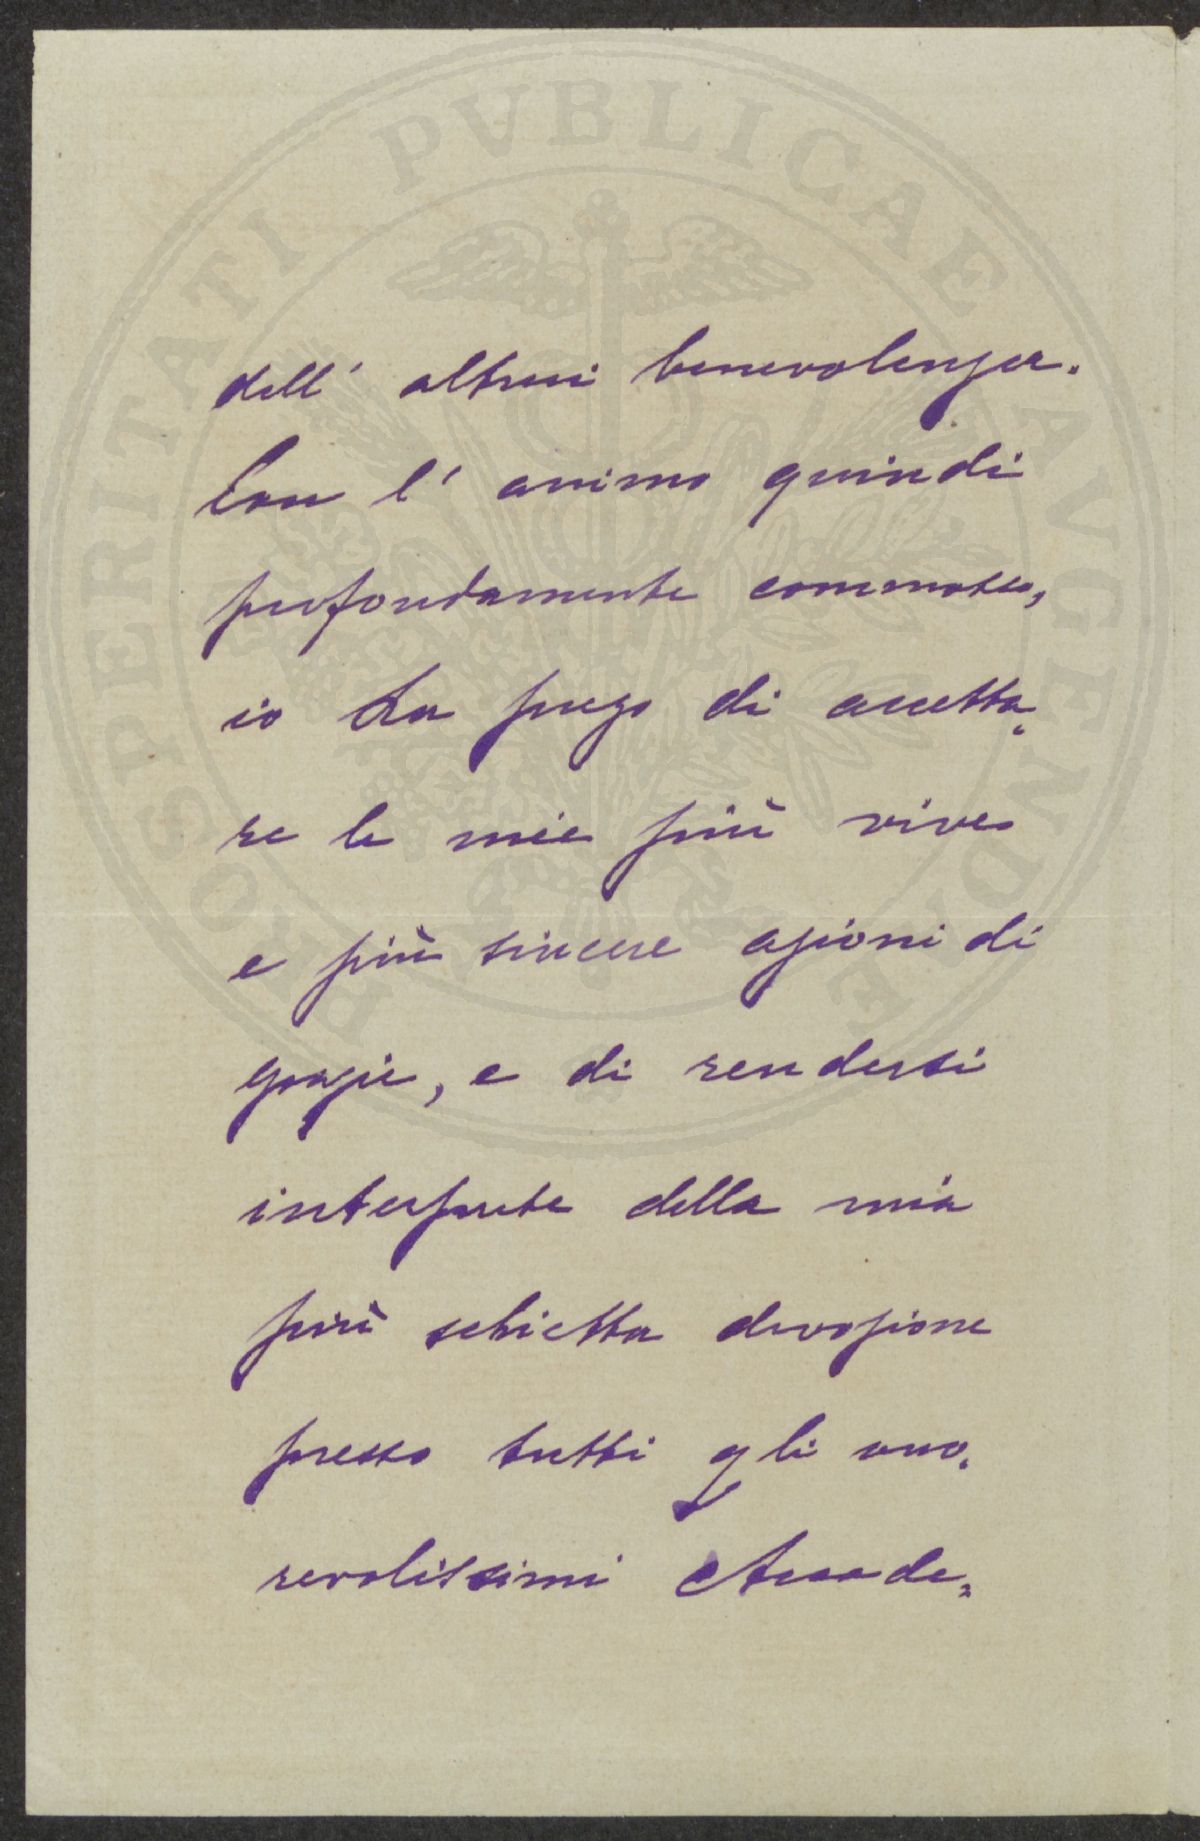 dell' altrui benevolenza.
Con l' animo quindi
profondamente commosso,
io La prego di accetta„
re le mie più vive
e più sincere azioni di
grazie, e di rendersi
interprete della mia
più schietta devozione
presso tutti gli ono„
revolissimi Accade„
PROSPERITATI PVBLICAE AVGENDAE